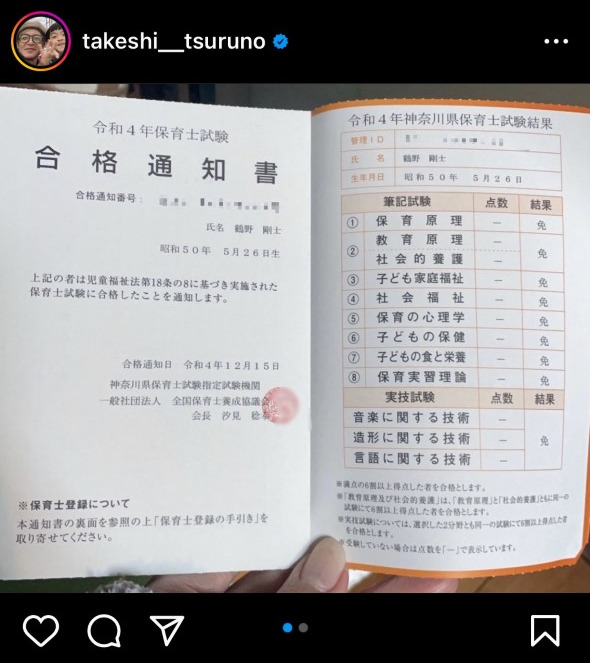 takeshi__tsuruno
令和4年保育士試験
合格通知書
合格通知番号：
氏名 鶴野 剛士
昭和50年 5月26日生
上記の者は児童福祉法第18条の8に基づき実施された
保育士試験に合格したことを通知します。
合格通知日 令和4年12月15日
神奈川県保育士試験指定試験機関
一般社団法人 全国保育士養成協議会
会長 汐見 稔幸
※保育士登録について
本通知書の裏面を参照の上「保育士登録の手引き」を
取り寄せてください。
令和4年神奈川県保育士試験結果
管理ID
氏名 鶴野 剛士
生年月日 昭和50年 5月26日
筆記試験 点数 結果
① 保育原理 － 免
② 教育原理 － 免
社会的養護 －
③ 子ども家庭福祉 － 免
④ 社会福祉 － 免
⑤ 保育の心理学 － 免
⑥ 子どもの保健 － 免
⑦ 子どもの食と栄養 － 免
⑧ 保育実習理論 － 免
実技試験 点数 結果
音楽に関する技術 －
造形に関する技術 － 免
言語に関する技術 －
※満点の6割以上得点した者を合格とします。
※「教育原理及び社会的養護」は、「教育原理」と「社会的養護」ともに同一の
試験にて6割以上得点した者を合格とします。
※実技試験については、選択した2分野とも同一の試験にて6割以上得点した者
を合格とします。
※受験していない場合は点数を「－」で表示しています。